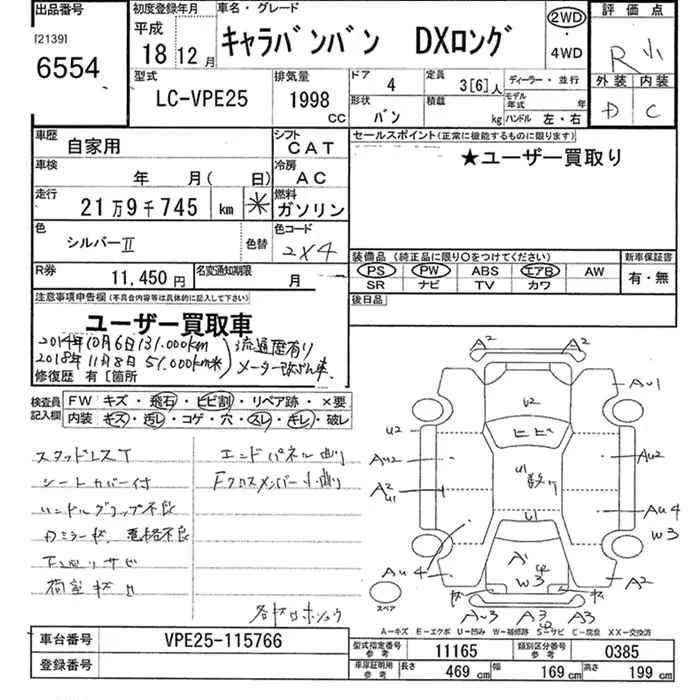 出品番号 初度登録年月 車名・グレード 評価点
[2139] 6554 平成 18 12月 キャラバンバン DXロング 2WD ・ 4WD R 小
型式 排気量 ドア 4 定員 3[6]人 ディーラー・並行 外装 内装
LC-VPE25 1998 CC 形状 バン 積載 kg モデル年式 年 ハンドル 左・右 D C
車歴 自家用 シフト CAT セールスポイント(正常に機能するものに限ります)
車検 年 月( 日) 冷房 AC ★ユーザー買取り
走行 21万9千745 km ※ 燃料 ガソリン
色 シルバーⅡ 色替 色コード 2X4
装備品 (純正品に限り○をつけてください) 新車保証書
R券 11,450円 名変通知期限 月 PS PW ABS エアB AW 有・無
SR ナビ TV カワ
注意事項申告欄(不具合内容等は具体的に記入して下さい) 後日品
ユーザー買取車
2014年10月6日131.000km 流通歴有り
2018年11月8日51.000km※ メーター改ざん車.
修復歴 有[箇所
検査員記入欄 FW キズ・飛石・ヒビ割・リペア跡・×要
内装 キズ・汚レ・コゲ・穴・スレ・キレ・破レ
スタッドレスT エンドパネル曲り
シートカバー付 Fクロスメンバー小曲り
ハンドルグリップ不良
Dミラー
下廻りサビ
荷室
A2 A2
AU1
U2 U2
ヒビ
AU2 U1 AU2
A2
U1
U1 AU4
W3
A1
W3
AU4 A2
スペア
A~3 A3 A3
A-キズ E-エクボ U-凹み W-補修跡 S-サビ C-腐食 XX-交換済
車台番号 VPE25-115766 型式指定番号 参考 11165 類別区分番号 参考 0385
登録番号 車庫証明用 参考 長さ 469 cm 幅 169 cm 高さ 199 cm